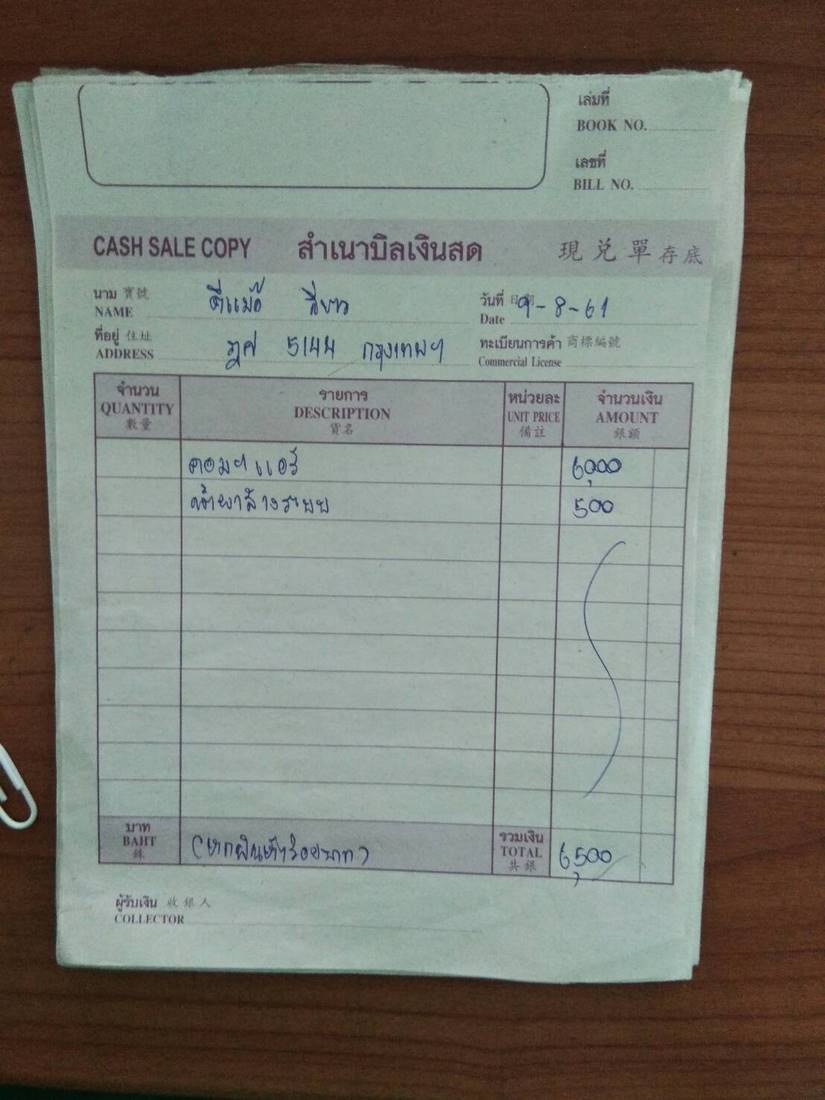 เล่มที่
BOOK NO.
เลขที่
BILL NO.
CASH SALE COPY สำเนาบิลเงินสด 現兌單存底
นาม 寶號
NAME ตี๋แม๊อ สีขาว
วันที่ 日期
Date 9-8-61
ที่อยู่ 住址
ADDRESS ฎศ 5144 กรุงเทพฯ
ทะเบียนการค้า 商標編號
Commercial License
จำนวน รายการ หน่วยละ จำนวนเงิน
QUANTITY DESCRIPTION UNIT PRICE AMOUNT
數量 貨名 備註 銀額
คอมฯแอร์ 6,000
น้ำยาล้างระบบ 500
บาท
BAHT
銖
(หกพันห้าร้อยบาท)
รวมเงิน
TOTAL 6,500
共銀
ผู้รับเงิน 收銀人
COLLECTOR